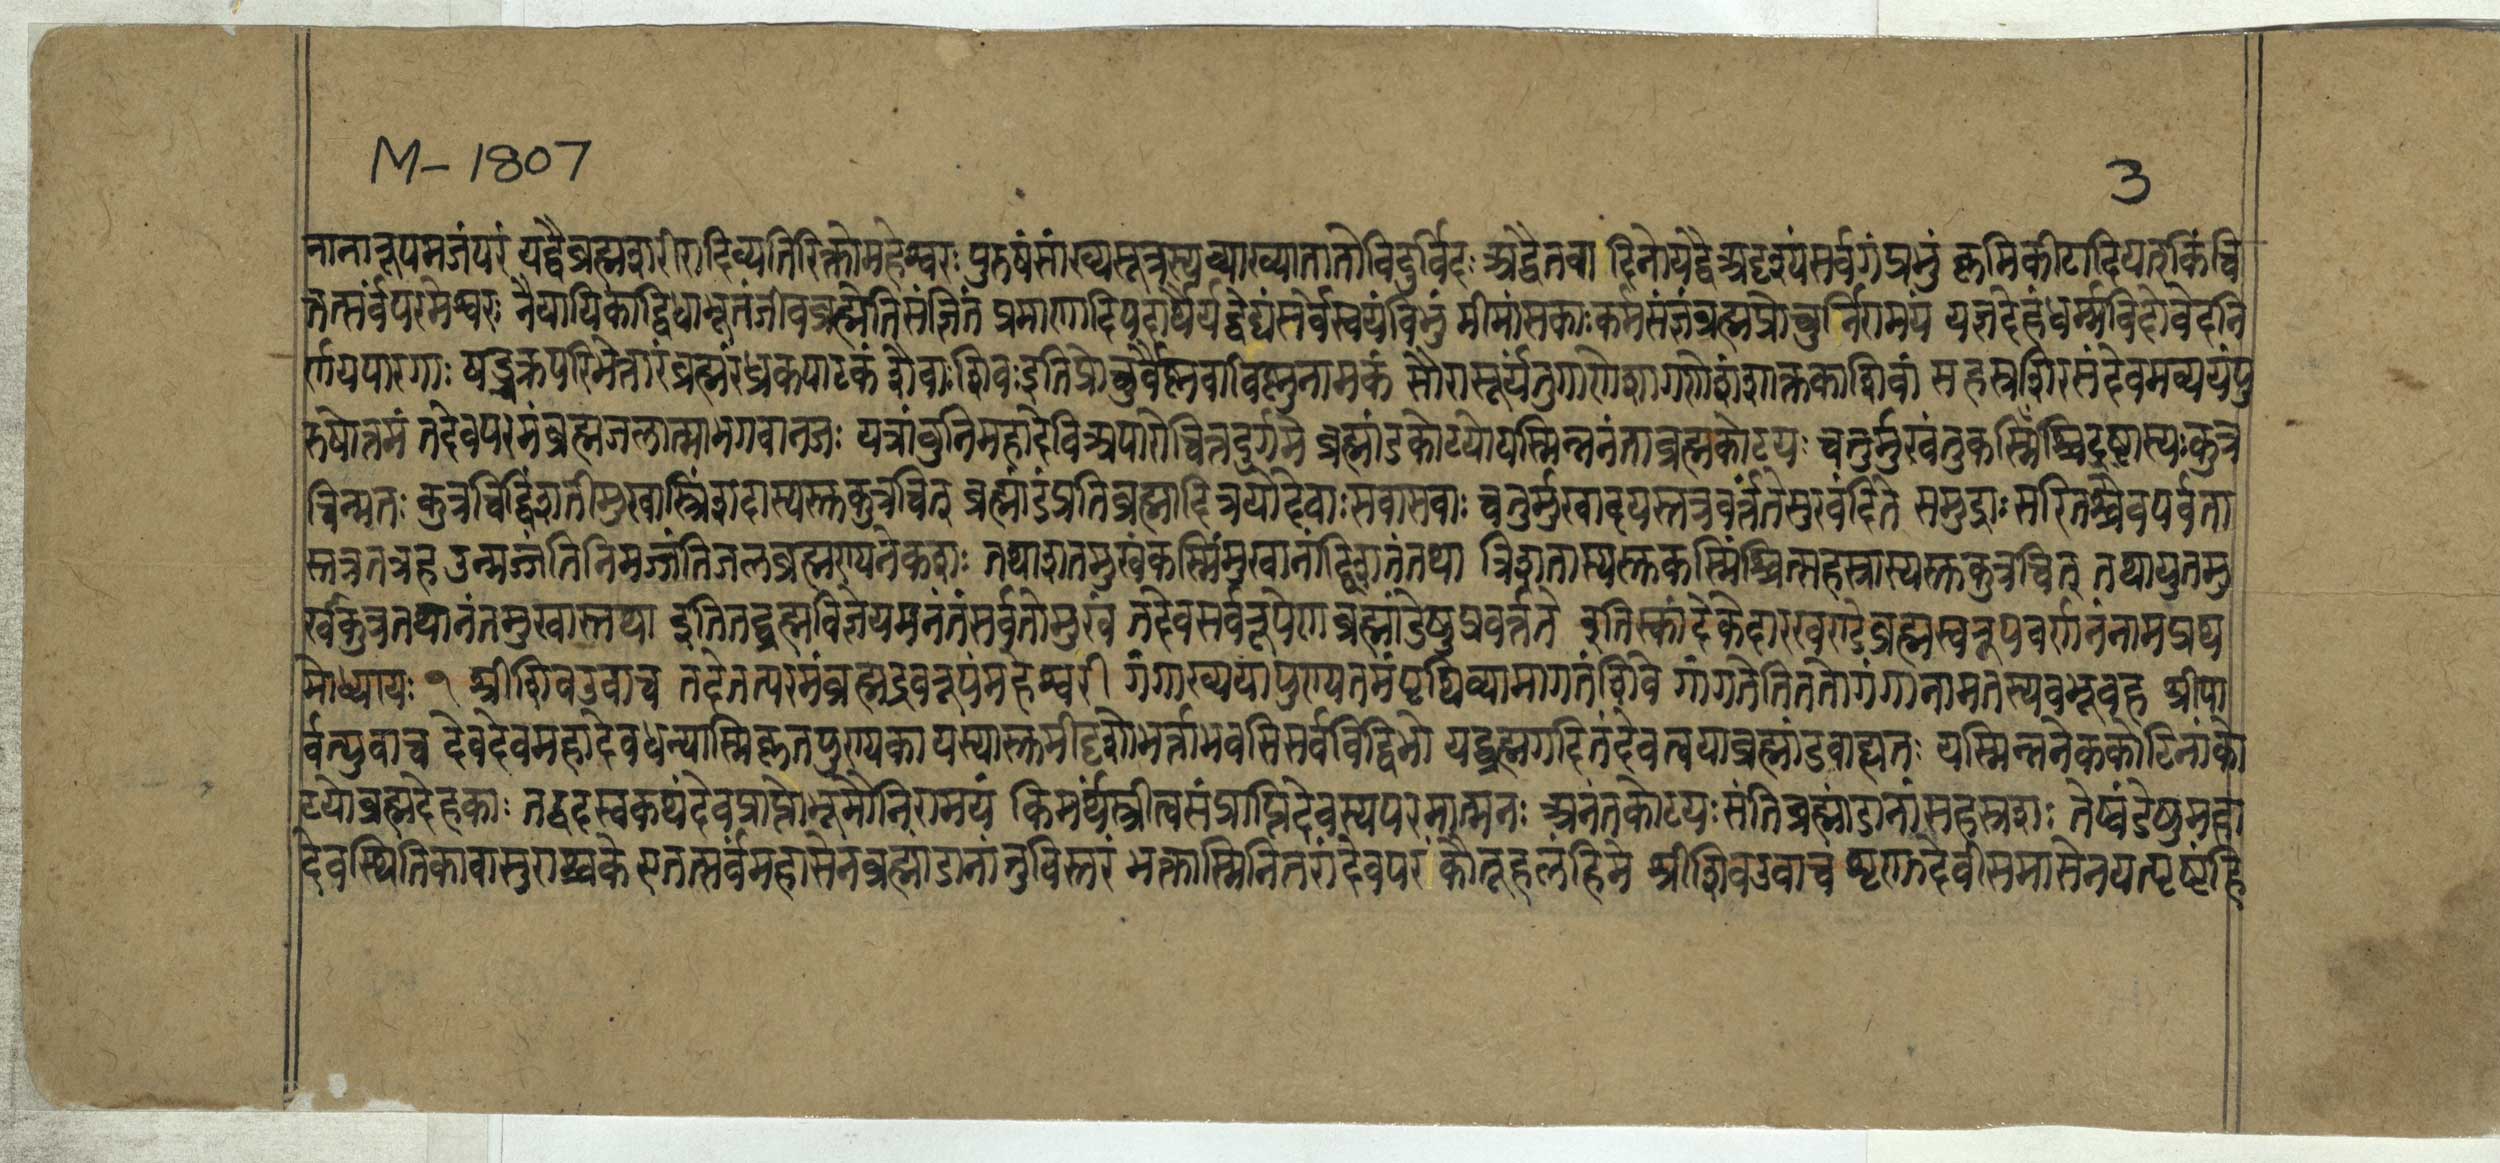 M-1807
3
नानारूपमजंपरं यद्वैब्रह्मशरीरादिव्यतिरिक्तोमहेश्वरः पुरुषंसांख्यसूत्रस्यव्याख्यातातोविदुर्विदः अद्वैतवादिनोयेद्वैअदृश्यंसर्वगंप्रभुं कृमिकीटादियत्किंचि
तत्सर्वंपरमेश्वरः नैयायिकाद्विधाभूतंजीवब्रह्मेतिसंज्ञितं प्रमाणादिपदार्थैर्यद्वेद्यंसर्वस्वयंविभुं मीमांसकाःकर्मसंज्ञंब्रह्मप्रोचुर्निरामयं यज्ञदेहंधर्म्मविदोवेदनि
र्णयपारगाः षड्चक्रपरिमेत्तारंब्रह्मरंध्रकपाटकं शैवाःशिवःइतिप्रोचुर्वैष्णवाविष्णुनामकं सौरासूर्यंतुगाणेशागणेशंशाक्तकाशिवां सहस्रशिरसंदेवमव्ययंपु
रुषोत्तमं तदेवपरमंब्रह्मजलात्माभगवानजः यत्रांबुनिमहादेविअपारेचित्तदुर्गमे ब्रह्मांडकोटयोयस्मिन्ननंताब्रह्मकोटयः चतुर्मुखंतुकस्मिंश्चिदष्टास्यःकुत्र
चिन्मतः कुत्रचिद्विंशतीमुखास्त्रिंशदास्यस्तुकुत्रचित् ब्रह्मांडंप्रतिब्रह्मादित्रयोदेवाःसवासवाः चतुर्मुखादृपस्तत्रवर्त्ततेसुरवंदिते समुद्राःसरितश्चैवपर्वता
स्तत्रतत्रह उन्मज्जंतिनिमज्जंतिजलब्रह्मण्यनेकशः तथाशतमुखंकस्मिंमुखानांद्विशतंतथा त्रिशतास्यस्तुकस्मिंश्चित्सहस्रास्यस्तुकुत्रचित् तथायुतमु
खंकुत्रतथानंतमुखास्तथा इतितद्ब्रह्मविज्ञेयमनंतंसर्वतोमुखं तदेवसर्वरूपेणब्रह्मांडेषुप्रवर्त्तते इतिस्कांदेकेदारखण्डेब्रह्मस्वरूपवर्णनंनामप्रथ
मोध्यायः १ श्रीशिवउवाच तदेतत्परमंब्रह्मद्रवरूपंमहेश्वरी गंगाख्ययापुण्यतमंपृथिव्यामागतंशिवे गांगतेतिततोगंगानामतस्यबभूवह श्रीपा
र्वत्युवाच देवदेवमहादेवधन्यास्मिकृतपुण्यका यस्यास्तमीदृशोभर्त्ताभवसिसर्वविद्विभो यद्ब्रह्मगदितंदेवत्वयाब्रह्मांडवाह्यतः यस्मिन्ननेककोटिनांको
टयोब्रह्मदेहकाः तद्वदस्वकथंदेवप्राप्तोभूमौनिरामयं किमर्थंस्त्रीत्वसंप्राप्तिदेवस्यपरमात्मनः अनंतकोटयःसंतिब्रह्मांडानांसहस्रशः तेष्वंडेषुमहा
देवस्थितिकावासुराश्चके एतत्सर्वंमहासेनब्रह्मांडानांनुविस्तरं भक्तास्मिनितरांदेवपरंकौतूहलंहिमे श्रीशिवउवाच शृणुदेवीसमासेनयत्पृष्टंहि